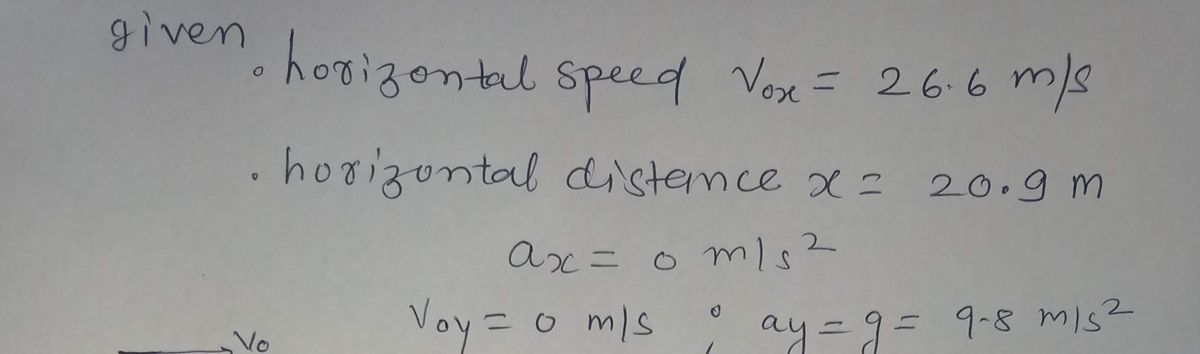 given
. horizontal speed Vox = 26.6 m/s
. horizontal distance x = 20.9 m
ax = 0 m/s²
Voy = 0 m/s ; ay = g = 9.8 m/s²
Vo